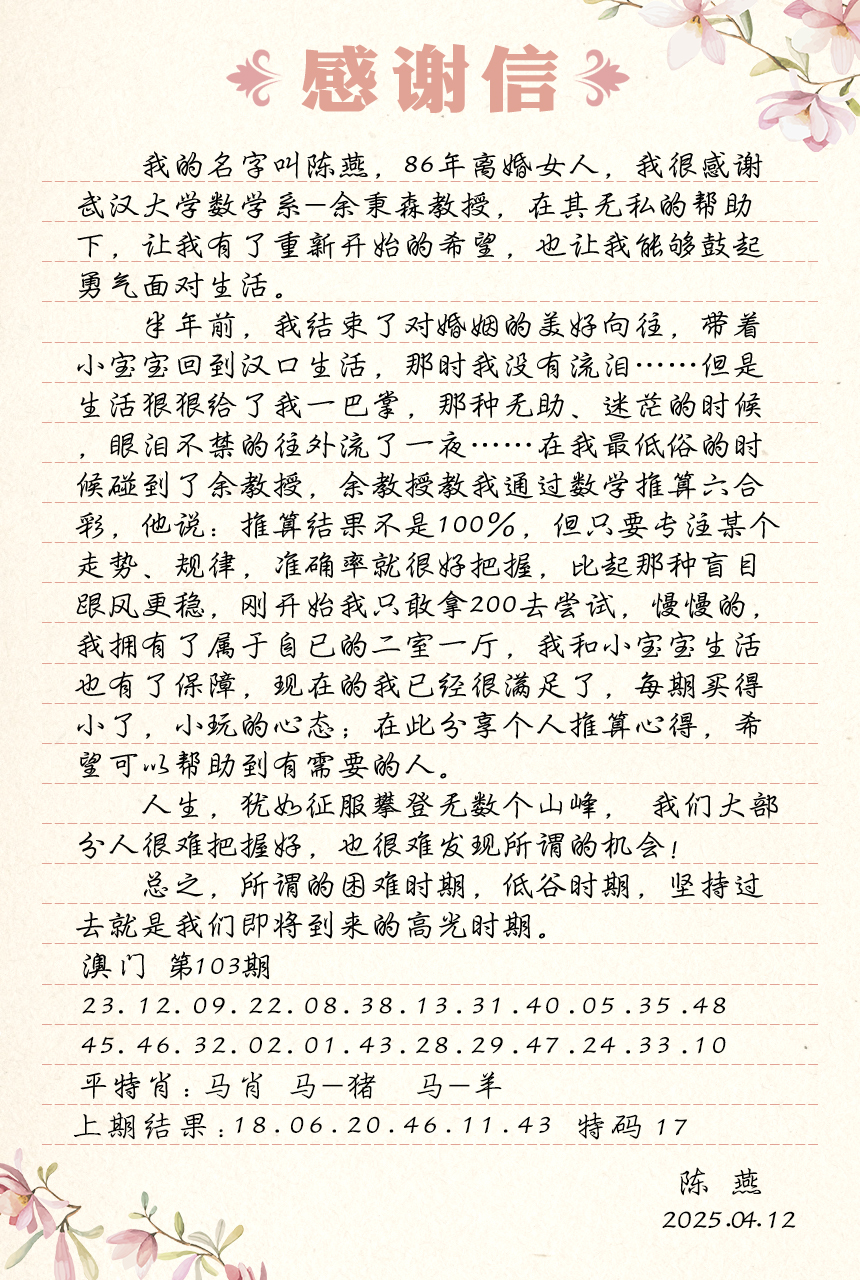 感谢信
我的名字叫陈燕，86年离婚女人，我很感谢
武汉大学数学系—余秉森教授，在其无私的帮助
下，让我有了重新开始的希望，也让我能够鼓起
勇气面对生活。
半年前，我结束了对婚姻的美好向往，带着
小宝宝回到汉口生活，那时我没有流泪……但是
生活狠狠给了我一巴掌，那种无助、迷茫的时候
，眼泪不禁的往外流了一夜……在我最低俗的时
候碰到了余教授，余教授教我通过数学推算六合
彩，他说：推算结果不是100%，但只要专注某个
走势、规律，准确率就很好把握，比起那种盲目
跟风更稳，刚开始我只敢拿200去尝试，慢慢的，
我拥有了属于自已的二室一厅，我和小宝宝生活
也有了保障，现在的我已经很满足了，每期买得
小了，小玩的心态；在此分享个人推算心得，希
望可以帮助到有需要的人。
人生，犹如征服攀登无数个山峰， 我们大部
分人很难把握好，也很难发现所谓的机会！
总之，所谓的困难时期，低谷时期，坚持过
去就是我们即将到来的高光时期。
澳门 第103期
23.12.09.22.08.38.13.31.40.05.35.48
45.46.32.02.01.43.28.29.47.24.33.10
平特肖：马肖 马—猪 马—羊
上期结果：18.06.20.46.11.43 特码 17
陈 燕
2025.04.12